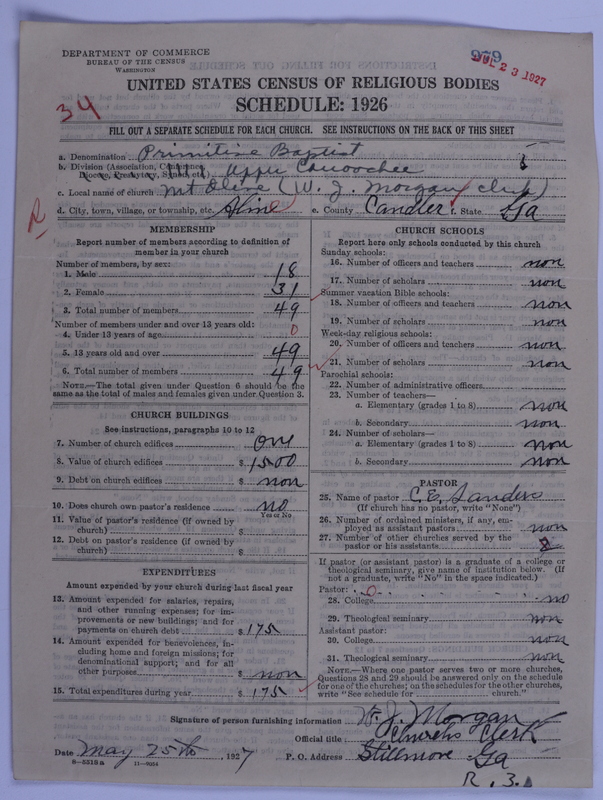 DEPARTMENT OF COMMERCE
BUREAU OF THE CENSUS
WASHINGTON
979
JUL 23 1927
UNITED STATES CENSUS OF RELIGIOUS BODIES
SCHEDULE: 1926
34
FILL OUT A SEPARATE SCHEDULE FOR EACH CHURCH. SEE INSTRUCTIONS ON THE BACK OF THIS SHEET
a. Denomination Primitive Baptist
b. Division (Association, Conference, Diocese, Presbytery, Synod, etc.) Uppu Canoochee
c. Local name of church Mt Olive (W. J. Morgan clerk)
d. City, town, village, or township, etc. Aline e. County Candler f. State Ga
R
MEMBERSHIP
Report number of members according to definition of member in your church
Number of members, by sex:
1. Male 18
2. Female 31
3. Total number of members 49
Number of members under and over 13 years old:
4. Under 13 years of age 0
5. 13 years old and over 49
6. Total number of members 49
NOTE.—The total given under Question 6 should be the same as the total of males and females given under Question 3.
CHURCH BUILDINGS
See instructions, paragraphs 10 to 12
7. Number of church edifices One
8. Value of church edifices $1500
9. Debt on church edifices $ non
10. Does church own pastor's residence no
Yes or No
11. Value of pastor's residence (if owned by church) $
12. Debt on pastor's residence (if owned by church) $
EXPENDITURES
Amount expended by your church during last fiscal year
13. Amount expended for salaries, repairs, and other running expenses; for improvements or new buildings; and for payments on church debt $175
14. Amount expended for benevolences, including home and foreign missions; for denominational support; and for all other purposes $ non
15. Total expenditures during year $175
CHURCH SCHOOLS
Report here only schools conducted by this church
Sunday schools:
16. Number of officers and teachers non
17. Number of scholars non
Summer vacation Bible schools:
18. Number of officers and teachers non
19. Number of scholars non
Week-day religious schools:
20. Number of officers and teachers non
21. Number of scholars non
Parochial schools:
22. Number of administrative officers
23. Number of teachers—
a. Elementary (grades 1 to 8) non
b. Secondary non
24. Number of scholars—
a. Elementary (grades 1 to 8) non
b. Secondary non
PASTOR
25. Name of pastor C. E. Sanders
(If church has no pastor, write "None")
26. Number of ordained ministers, if any, employed as assistant pastors non
27. Number of other churches served by the pastor or his assistants 2
If pastor (or assistant pastor) is a graduate of a college or theological seminary, give name of institution below. (If not a graduate, write "No" in the space indicated.)
Pastor: 0
28. College no
29. Theological seminary non
Assistant pastor:
30. College non
31. Theological seminary non
NOTE.—Where one pastor serves two or more churches, Questions 28 and 29 should be answered only on the schedule for one of the churches; on the schedules for the other churches, write "See schedule for church."
Signature of person furnishing information W. J. Morgan
Official title Churchs Clerk
Date May 25th 1927 P. O. Address Stillmore Ga
8-5318a 11-9034
R. 3.